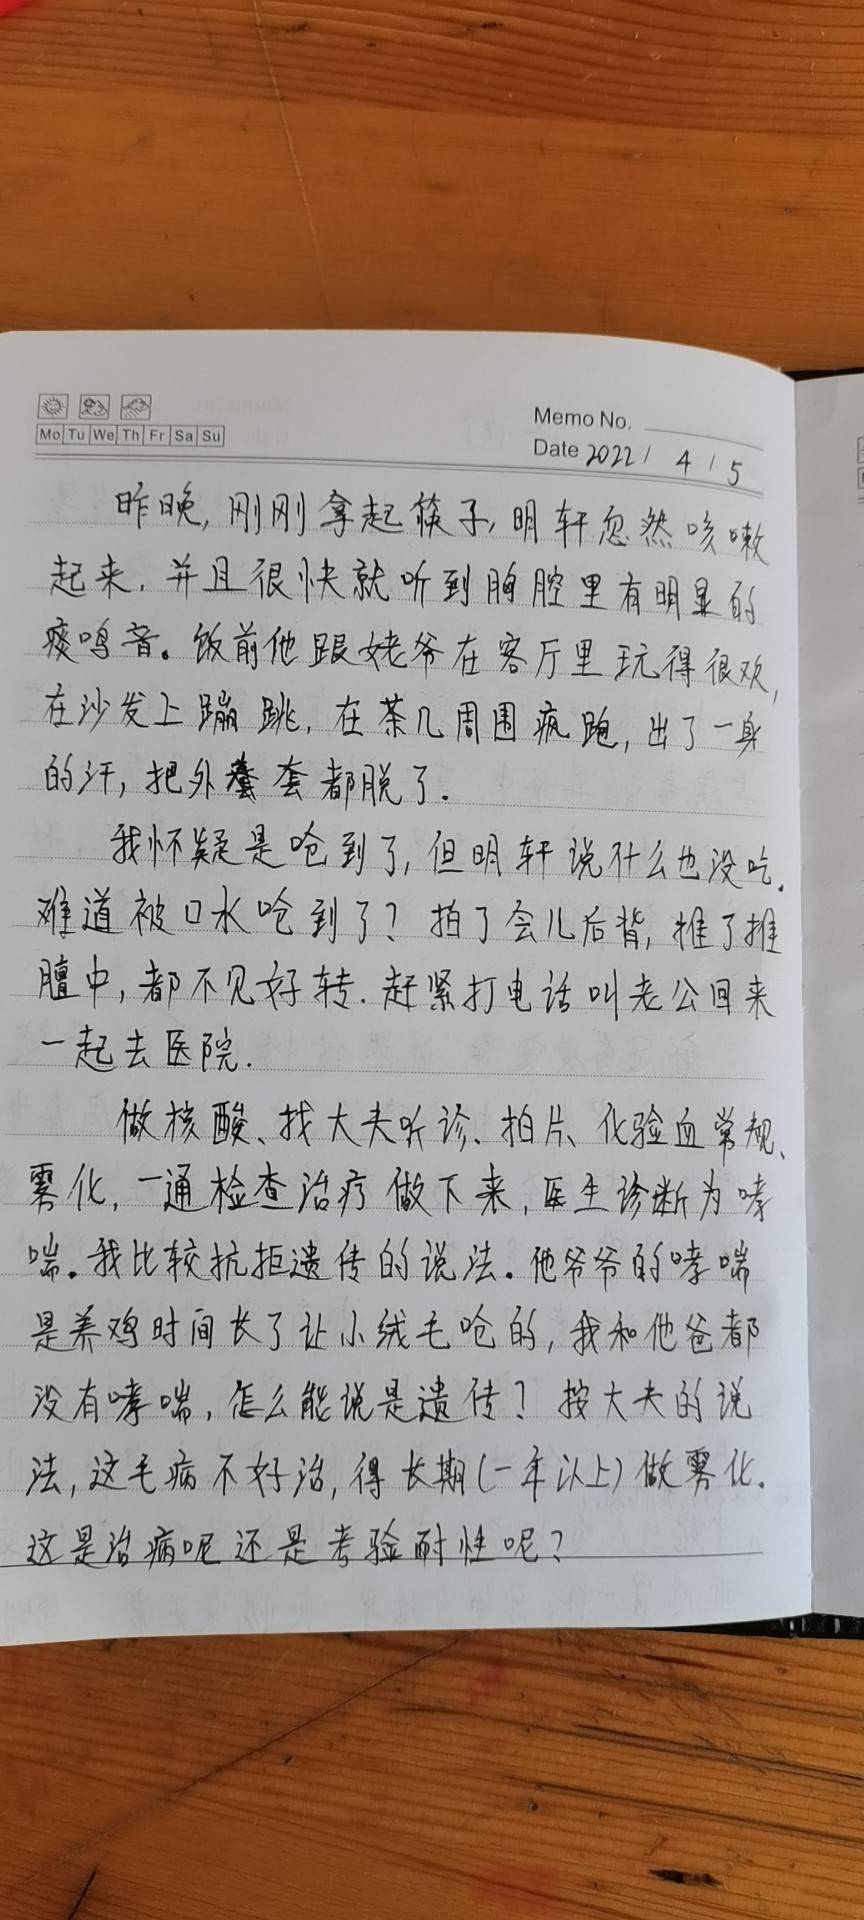 Memo No.
Mo Tu We Th Fr Sa Su
Date 2022 / 4 / 5
昨晚,刚刚拿起筷子,明轩忽然咳嗽
起来,并且很快就听到胸腔里有明显的
痰鸣音。饭前他跟姥爷在客厅里玩得很欢,
在沙发上蹦跳,在茶几周围疯跑,出了一身
的汗,把外套都脱了.
我怀疑是呛到了,但明轩说什么也没吃.
难道被口水呛到了?拍了会儿后背,推了推
膻中,都不见好转.赶紧打电话叫老公回来
一起去医院.
做核酸、找大夫听诊、拍片、化验血常规、
雾化,一通检查治疗做下来,医生诊断为哮
喘。我比较抗拒遗传的说法。他爷爷的哮喘
是养鸡时间长了让小绒毛呛的,我和他爸都
没有哮喘,怎么能说是遗传?按大夫的说
法,这毛病不好治,得长期(一年以上)做雾化.
这是治病呢还是考验耐性呢?